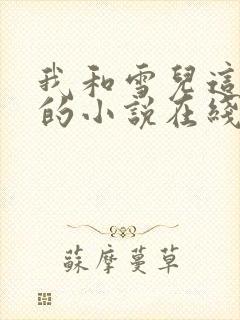 我和雪兒這
的小説在綫
蘇摩蔓草